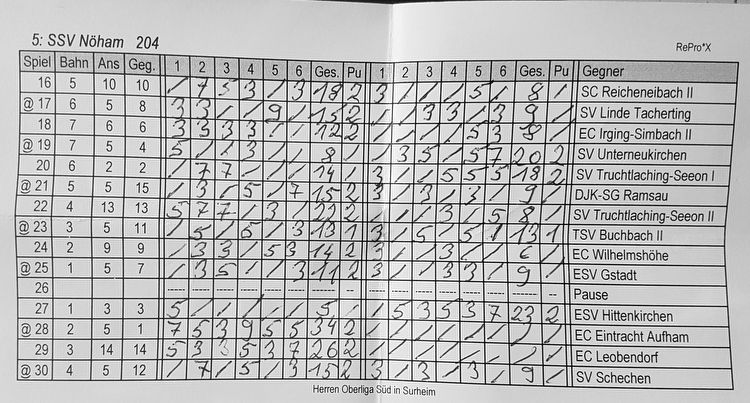 5: SSV Nöham 204
RePro*X
Spiel Bahn Ans Geg. 1 2 3 4 5 6 Ges. Pu 1 2 3 4 5 6 Ges. Pu Gegner
16 5 10 10 / 7 5 3 / 3 18 2 3 / / / 5 / 8 / SC Reicheneibach II
@ 17 6 5 8 3 3 / / 9 / 15 2 / / 3 3 / 3 9 / SV Linde Tacherting
18 7 6 6 3 3 3 3 / / 12 2 / / / / 5 3 8 / EC Irging-Simbach II
@ 19 7 5 4 5 / / 3 / / 8 / / 3 5 / 5 7 20 2 SV Unterneukirchen
20 6 2 2 / 7 7 / / / 14 / 3 / 5 5 5 18 2 SV Truchtlaching-Seeon I
@ 21 5 5 15 / 3 / 5 / 7 15 2 3 / 3 / 3 / 9 / DJK-SG Ramsau
22 4 13 13 5 7 7 / 3 / 22 2 / / / 3 / 5 8 / SV Truchtlaching-Seeon II
@ 23 3 5 11 / 5 / 5 / 3 13 1 3 / 5 / 5 / 13 1 TSV Buchbach II
24 2 9 9 / 3 3 / 5 3 14 2 3 / / 3 / / 6 / EC Wilhelmshöhe
@ 25 1 5 7 / 3 5 / / 3 11 2 3 / / 3 3 / 9 / ESV Gstadt
26 --- --- --- --- Pause
27 1 3 3 5 / / / / / 5 / / 5 3 5 3 7 23 2 ESV Hittenkirchen
@ 28 2 5 1 7 5 3 9 5 5 34 2 / / / / / / / / EC Eintracht Aufham
29 3 14 14 5 3 3 5 3 7 26 2 / / / / / / / / EC Leobendorf
@ 30 4 5 12 / 7 / 5 / 3 15 2 3 / 3 / 3 / 9 / SV Schechen
Herren Oberliga Süd in Surheim